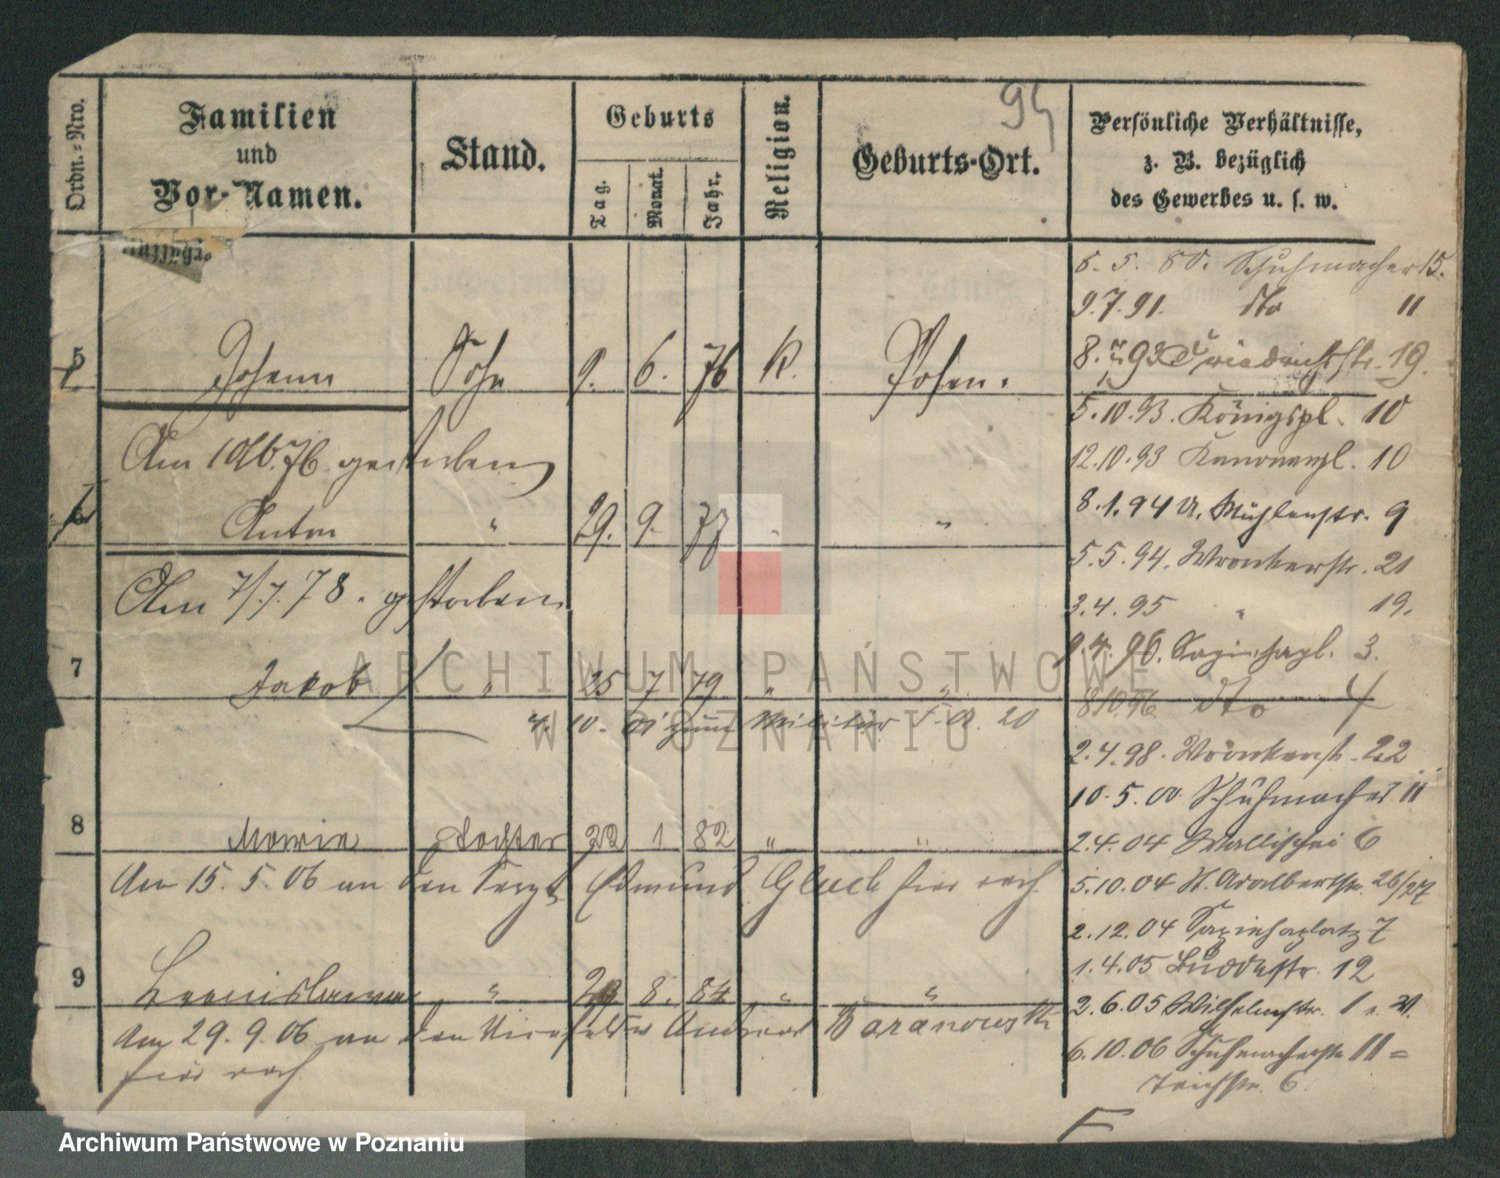 94
Ordn.-Nro.
Familien
und
Vor-Namen.
Stand.
Geburts
Tag.
Monat.
Jahr.
Religion.
Geburts-Ort.
Persönliche Verhältnisse,
z. B. bezüglich
des Gewerbes u. s. w.
5 Johann Sohn 9. 6. 76 K. Posen.
gestorben
6 Anton " 29. 9. 77 "
Am 7/7. 78. gestorben
7 Jakob " 25 7 79 " "
10. zum Militär 20
8 Maria Tochter 22 1 82 " "
Am 15. 5. 06 an den Edmund
9 " 29 8. 84 " "
Am 29. 9. 06 an den Baranowski
5. 80. Schuhmacher 15.
9.7.91. dto 11
8. 93 Friedrichstr. 19.
5.10.93. Königspl. 10
12.10.93 Kanonenpl. 10
8.1.94 Mühlenstr. 9
5.5.94. Wronkerstr. 21
3.4.95 " 19.
96. Sapiehapl. 3.
8.10.96. dto 4
2.4.98. Wronkerstr. 22
10.5.00. Schuhmacher 11
2.4.04 Wallischei 6
5.10.04 St. Adalbertstr. 26/27
2.12.04 Sapiehaplatz 7
1.4.05 Buddestr. 12
2.6.05 Wilhelmstr. 1
6.10.06 Schuhmacherstr. 11 =
Teichstr. 6.
ARCHIWUM PAŃSTWOWE
W POZNANIU
Archiwum Państwowe w Poznaniu